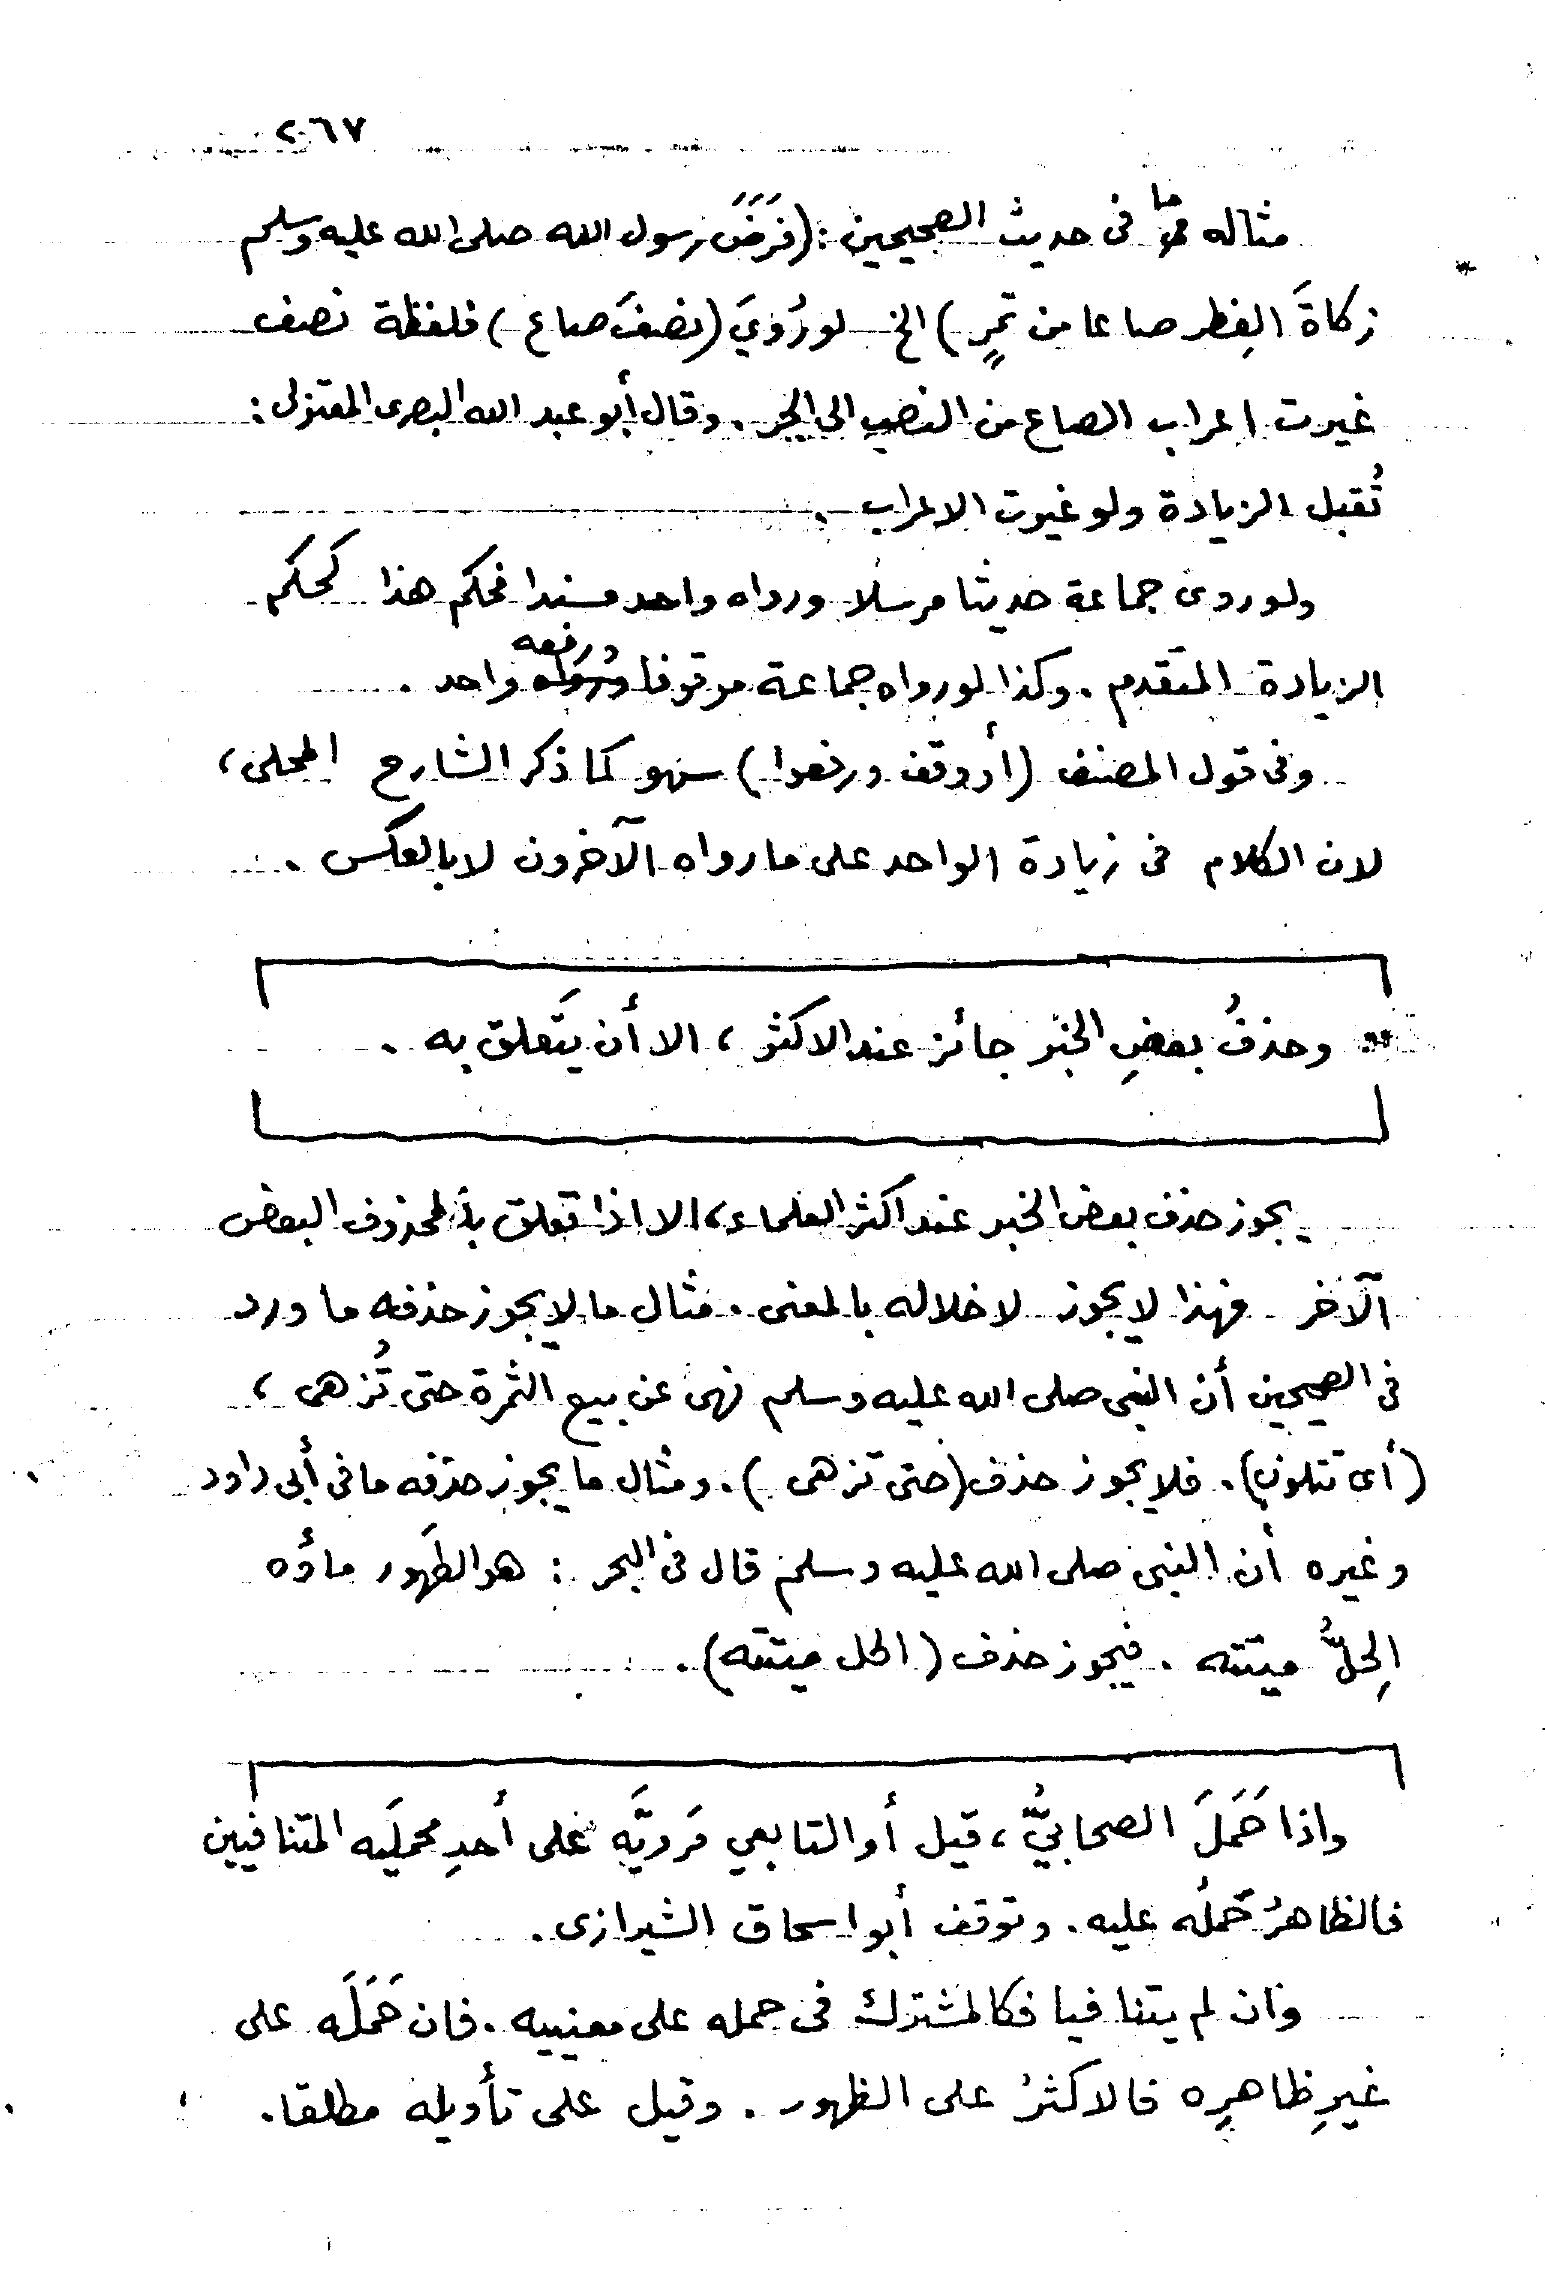 ٢٦٧
مثاله ما فى حديث الصحيحين : (فَرَضَ رسول الله صلى الله عليه وسلم
زكاةَ الفِطر صاعا من تمرٍ ) الخ لو رُوِيَ (نصفَ صاع ) فلفظة نصف
غيرت اعراب الصاع من النصب الى الجر . وقال أبو عبد الله البصرى المعتزلى :
تُقبل الزيادة ولو غيرت الاعراب .
ولو روى جماعة حديثا مرسلا ورواه واحد مسندا فحكم هذا كحكم
الزيادة المتقدم . وكذا لو رواه جماعة موقوفا ورفعه واحد .
وفى قول المصنف (أو وقف ورفعوا) سهو كما ذكر الشارح المحلى ،
لان الكلام فى زيادة الواحد على ما رواه الآخرون لا بالعكس .
وحذفُ بعضِ الخبر جائز عند الاكثر ، الا أن يَتَعلق به .
يجوز حذف بعض الخبر عند اكثر العلماء ، الا اذا تعلق بالمحذوف البعض
الآخر فهذا لا يجوز لاخلاله بالمعنى . مثال ما لا يجوز حذفه ما ورد
فى الصحيحين أن النبى صلى الله عليه وسلم نهى عن بيع الثمرة حتى تُزهى ،
(أى تتلون) . فلا يجوز حذف (حتى تزهى ) . ومثال ما يجوز حذفه ما فى أبى داود
وغيره أن النبى صلى الله عليه وسلم قال فى البحر : هو الطَهور ماؤُه
الحِلُّ ميتته . فيجوز حذف (الحل ميتته) .
واذا حَمَلَ الصحابيُّ ، قيل أو التابعي مَرويَّه على أحدِ محملَيه المتنافيين
فالظاهرُ حَملُه عليه . وتوقف أبو اسحاق الشيرازى .
وان لم يتنافيا فكالمشترك فى حمله على معنييه . فان حَمَلَه على
غيرِ ظاهرِه فالاكثرُ على الظهور . وقيل على تأويله مطلقا .